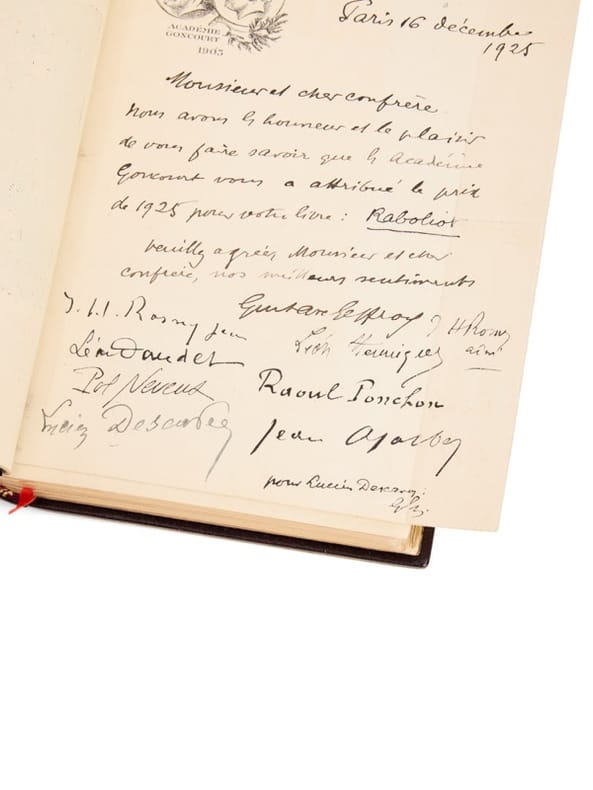 ACADÉMIE
GONCOURT
1903
Paris 16 décembre
1925
Monsieur et cher confrère
Nous avons l'honneur et le plaisir
de vous faire savoir que l'Académie
Goncourt vous a attribué le prix
de 1925 pour votre livre : Raboliot
Veuillez agréer Monsieur et cher
confrère, nos meilleurs sentiments
J. H. Rosny jeune
Gustave Geffroy
J H Rosny
aîné
Léon Daudet
Léon Hennique
Pol Neveux
Raoul Ponchon
Lucien Descaves
Jean Ajalbert
pour Lucien Descaves :